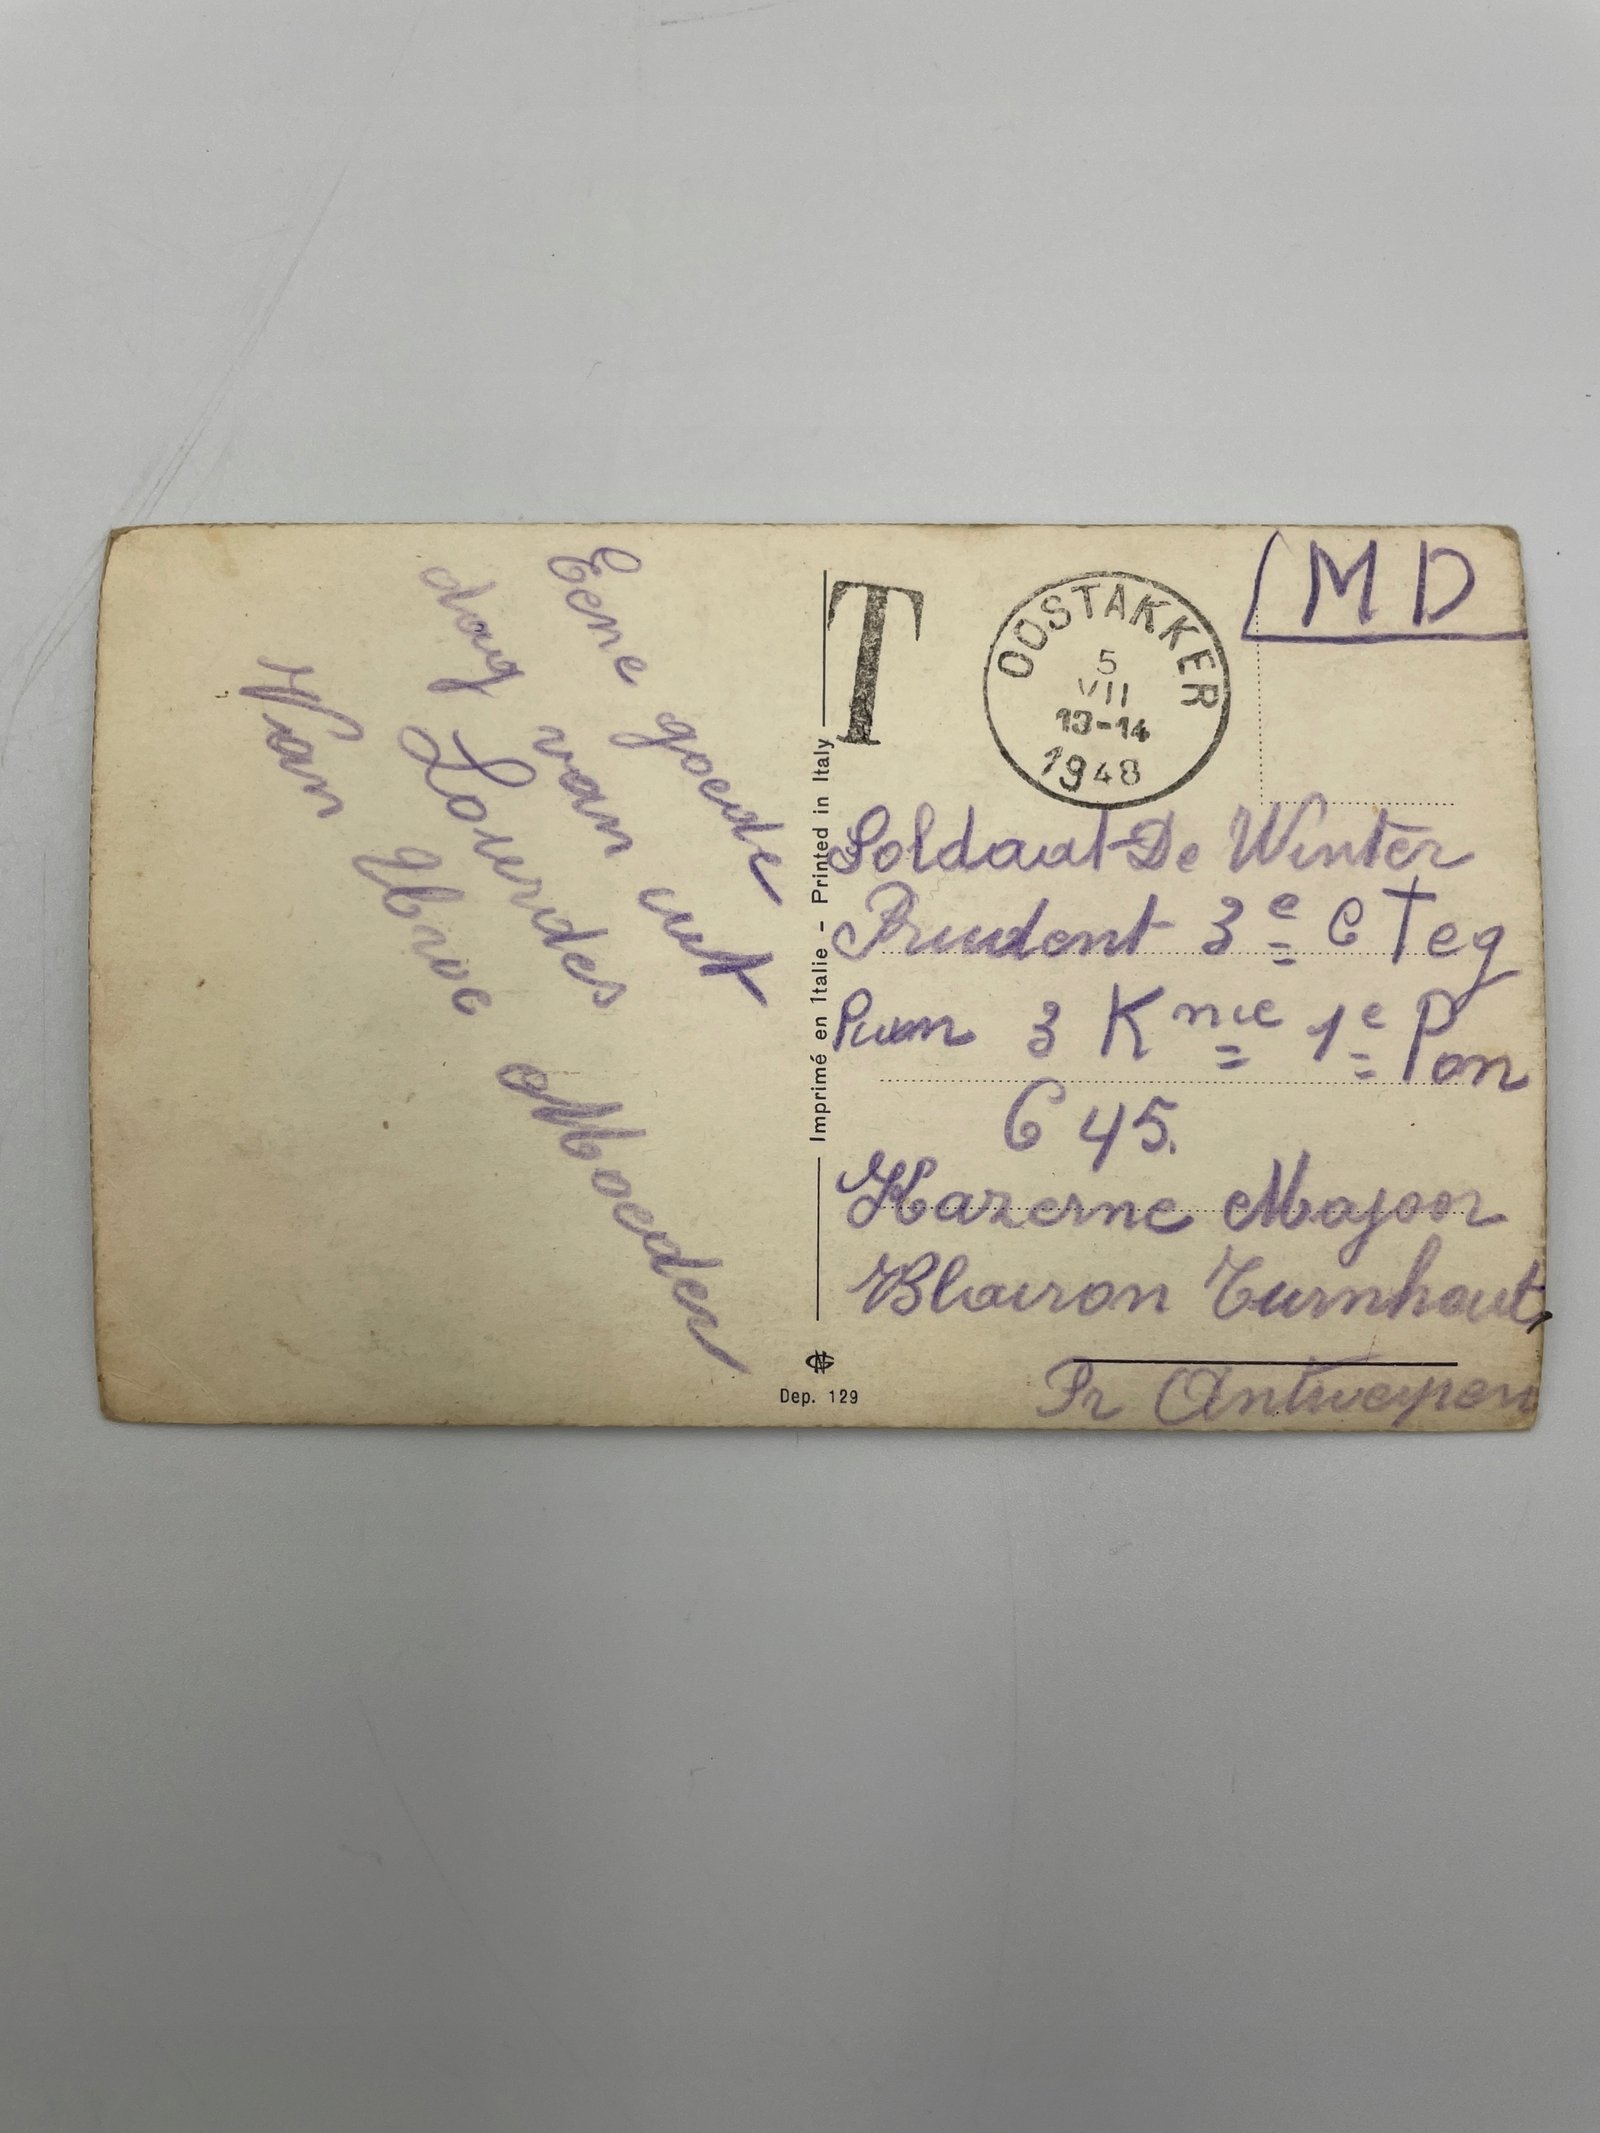 Eene goede
dag van uit
Lourdes
Van Uwe Moeder
Imprimé en Italie - Printed in Italy
Dep. 129
T
OOSTAKKER
5
VII
13-14
1948
MD
Soldaat De Winter
Prudent 3e C Teg
3 Knie 1e Pon
C 45.
Kazerne Majoor
Blairon Turnhout,
Pr Antwerpen